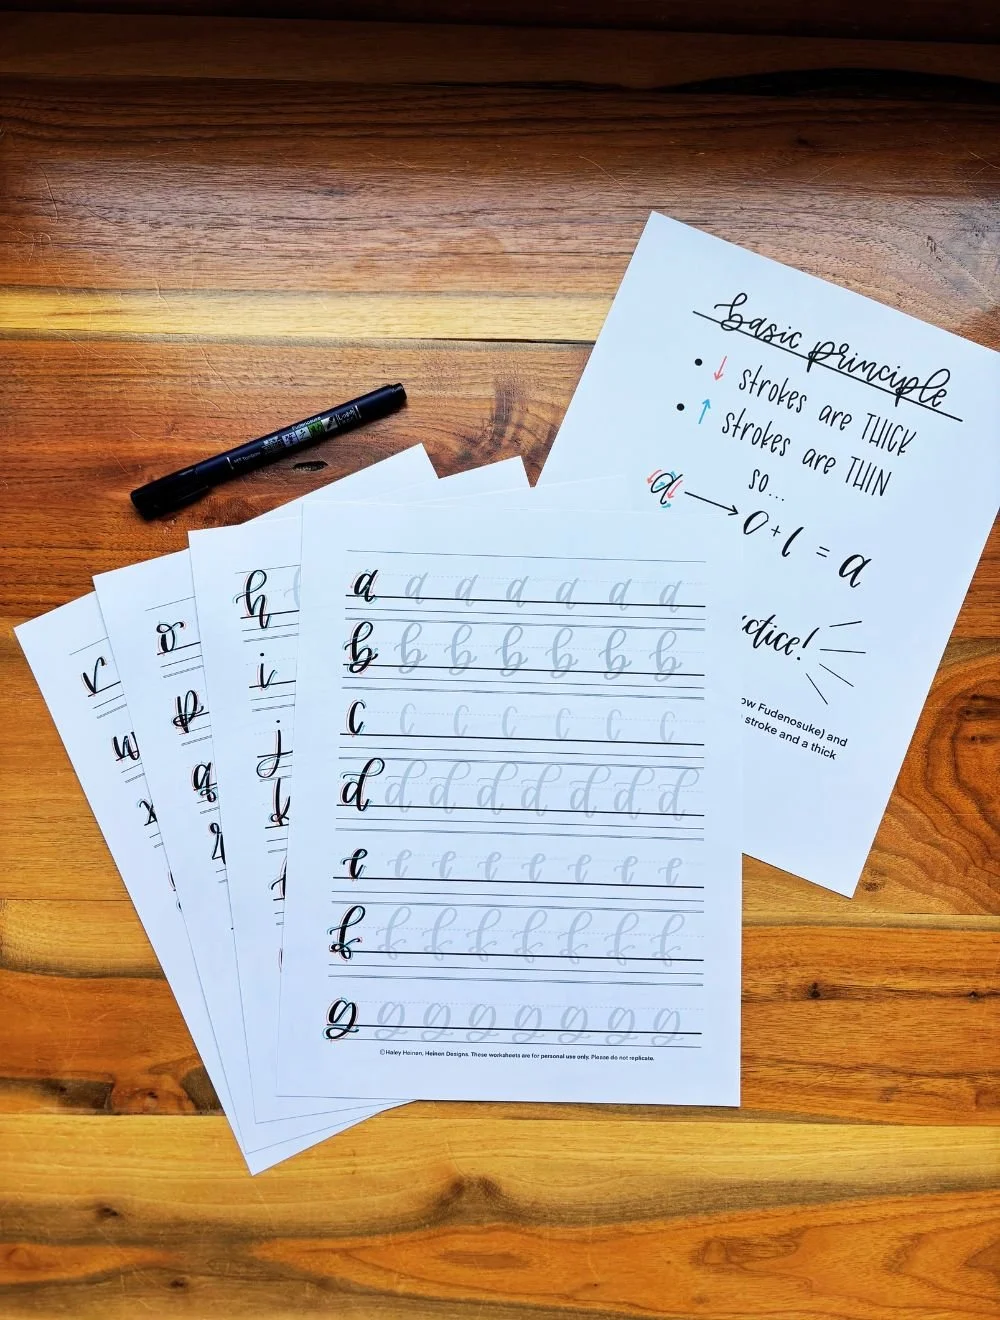 basic principle
• ↓ strokes are THICK
• ↑ strokes are THIN
so...
a → o + l = a
ctice!
ow Fudenosuke) and
stroke and a thick
Fudenosuke
Tombow
a a a a a a a
b b b b b b b
c c c c c c c
d d d d d d d d
e e e e e e e e
f f f f f f f f
g g g g g g g g
© Haley Heinen, Heinen Designs. These worksheets are for personal use only. Please do not replicate.
h
i
j
k
o
p
q
r
w
x